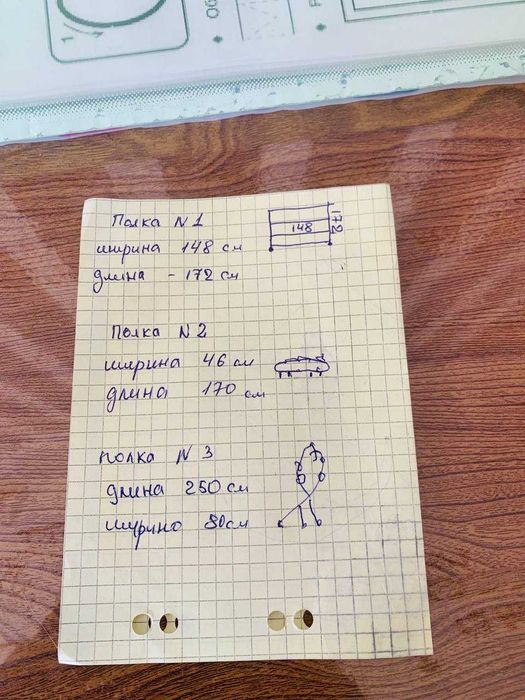 1
Об
Полка N 1
148
172
ширина 148 см
длина - 172 см
Полка N 2
ширина 46 см
длина 170 см
полка N 3
длина 250 см
шурино 80см